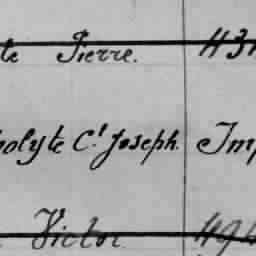 te Pierre. 434
polyte Ct Joseph. Imp
Victor 494